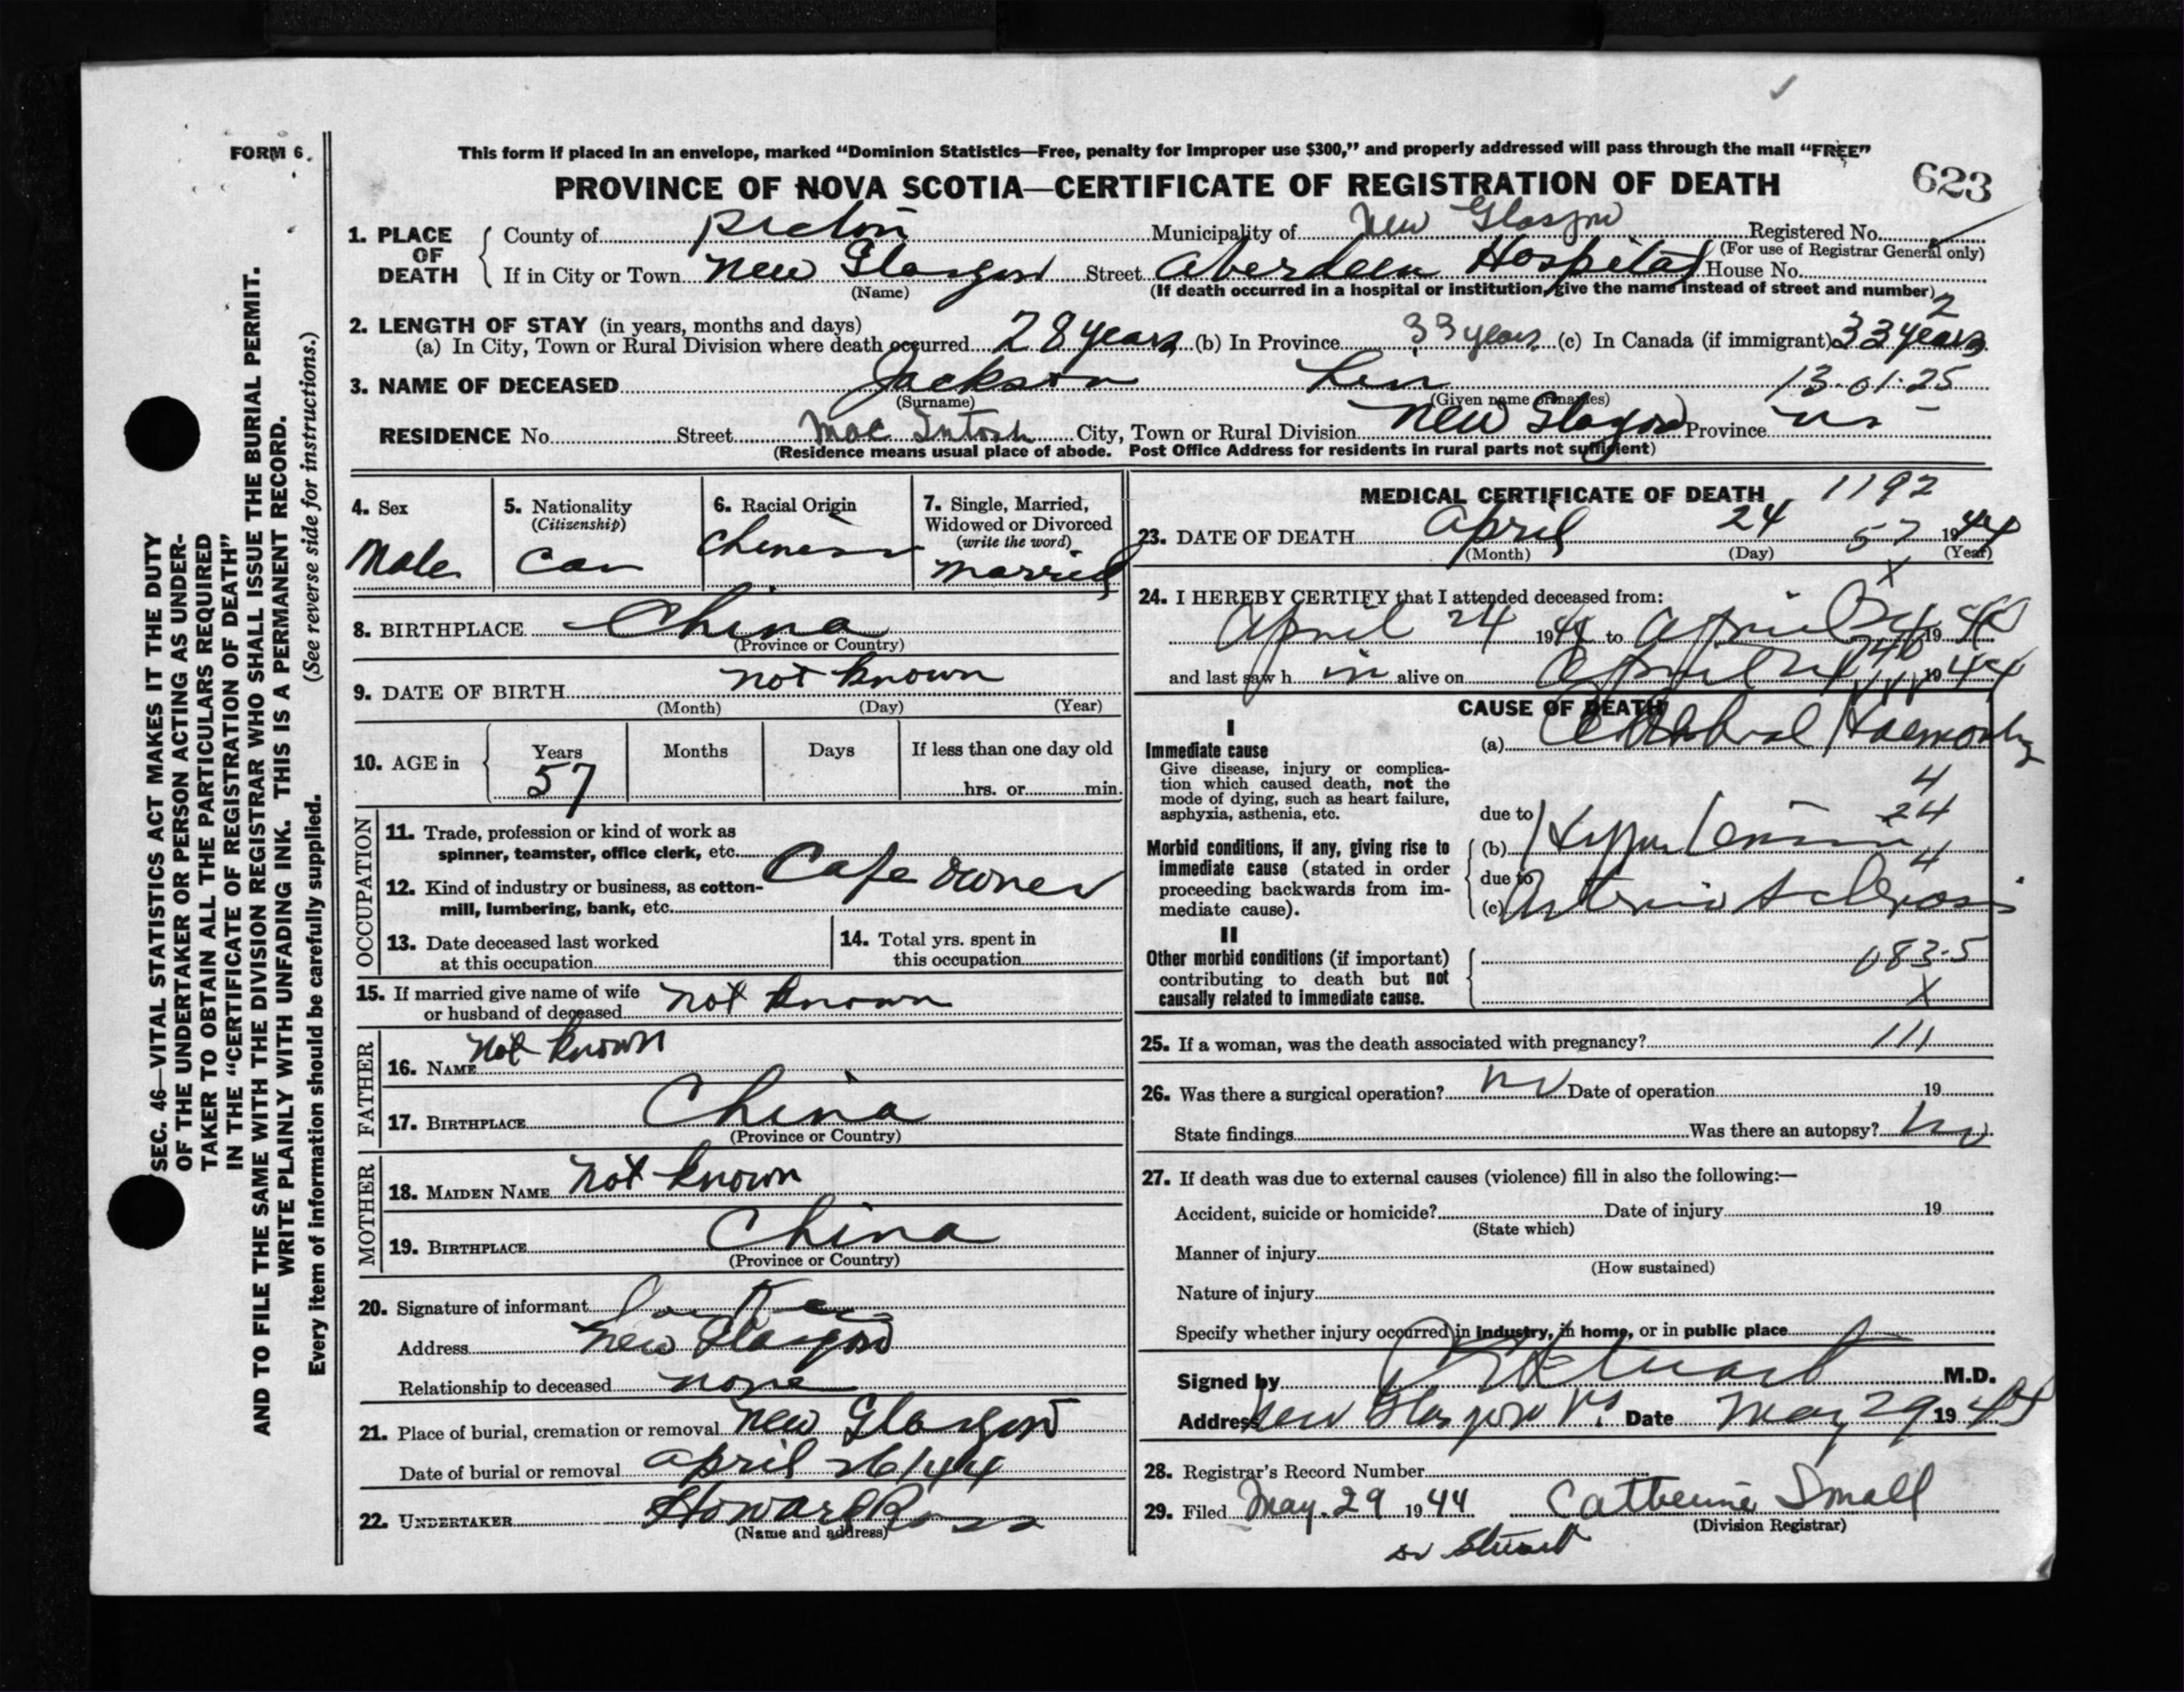 FORM 6.
This form if placed in an envelope, marked “Dominion Statistics—Free, penalty for improper use $300,” and properly addressed will pass through the mail “FREE”
PROVINCE OF NOVA SCOTIA—CERTIFICATE OF REGISTRATION OF DEATH
623
1. PLACE OF DEATH
County of Pictou Municipality of New Glasgow Registered No.
(For use of Registrar General only)
If in City or Town New Glasgow Street Aberdeen Hospital House No.
(Name) (If death occurred in a hospital or institution, give the name instead of street and number)
2. LENGTH OF STAY (in years, months and days)
2
(a) In City, Town or Rural Division where death occurred 28 years (b) In Province 33 years (c) In Canada (if immigrant) 33 years
3. NAME OF DECEASED Jackson Len 13-01-25
(Surname) (Given name or names)
RESIDENCE No. Street Mac Intosh City, Town or Rural Division New Glasgow Province ns
(Residence means usual place of abode. Post Office Address for residents in rural parts not sufficient)
4. Sex
Male
5. Nationality
(Citizenship)
Can
6. Racial Origin
Chinese
7. Single, Married,
Widowed or Divorced
(write the word)
Married
8. BIRTHPLACE China
(Province or Country)
9. DATE OF BIRTH not known
(Month) (Day) (Year)
10. AGE in
Years Months Days If less than one day old
57 hrs. or min.
OCCUPATION
11. Trade, profession or kind of work as
spinner, teamster, office clerk, etc.
Cafe owner
12. Kind of industry or business, as cotton-
mill, lumbering, bank, etc.
13. Date deceased last worked
at this occupation
14. Total yrs. spent in
this occupation
15. If married give name of wife
or husband of deceased not known
FATHER
16. NAME not known
17. BIRTHPLACE China
(Province or Country)
MOTHER
18. MAIDEN NAME not known
19. BIRTHPLACE China
(Province or Country)
20. Signature of informant
Address New Glasgow
Relationship to deceased none
21. Place of burial, cremation or removal New Glasgow
Date of burial or removal april 26/44
22. UNDERTAKER Howard Ross
(Name and address)
MEDICAL CERTIFICATE OF DEATH 1192
23. DATE OF DEATH April 24 57 1944
(Month) (Day) (Year)
X
24. I HEREBY CERTIFY that I attended deceased from:
April 24 1944 to April 24 1944
and last saw h im alive on April 24 1944
CAUSE OF DEATH
I
Immediate cause
Give disease, injury or complica-
tion which caused death, not the
mode of dying, such as heart failure,
asphyxia, asthenia, etc.
(a) Cerebral Haemorrhg
4
24
due to
Morbid conditions, if any, giving rise to
immediate cause (stated in order
proceeding backwards from im-
mediate cause).
(b) Hypertension
4
due to
(c) Arterio Sclerosis
II
Other morbid conditions (if important)
contributing to death but not
causally related to immediate cause.
083-5
X
25. If a woman, was the death associated with pregnancy? 111
26. Was there a surgical operation? no Date of operation 19
State findings Was there an autopsy? no
27. If death was due to external causes (violence) fill in also the following:—
Accident, suicide or homicide? Date of injury 19
(State which)
Manner of injury
(How sustained)
Nature of injury
Specify whether injury occurred in industry, in home, or in public place
Signed by Stuart M.D.
Address New Glasgow NS Date May 29 1944
28. Registrar's Record Number
29. Filed May. 29 1944 Catherine Small
(Division Registrar)
Dr Stuart
SEC. 46—VITAL STATISTICS ACT MAKES IT THE DUTY
OF THE UNDERTAKER OR PERSON ACTING AS UNDER-
TAKER TO OBTAIN ALL THE PARTICULARS REQUIRED
IN THE “CERTIFICATE OF REGISTRATION OF DEATH”
AND TO FILE THE SAME WITH THE DIVISION REGISTRAR WHO SHALL ISSUE THE BURIAL PERMIT.
WRITE PLAINLY WITH UNFADING INK. THIS IS A PERMANENT RECORD.
Every item of information should be carefully supplied. (See reverse side for instructions.)